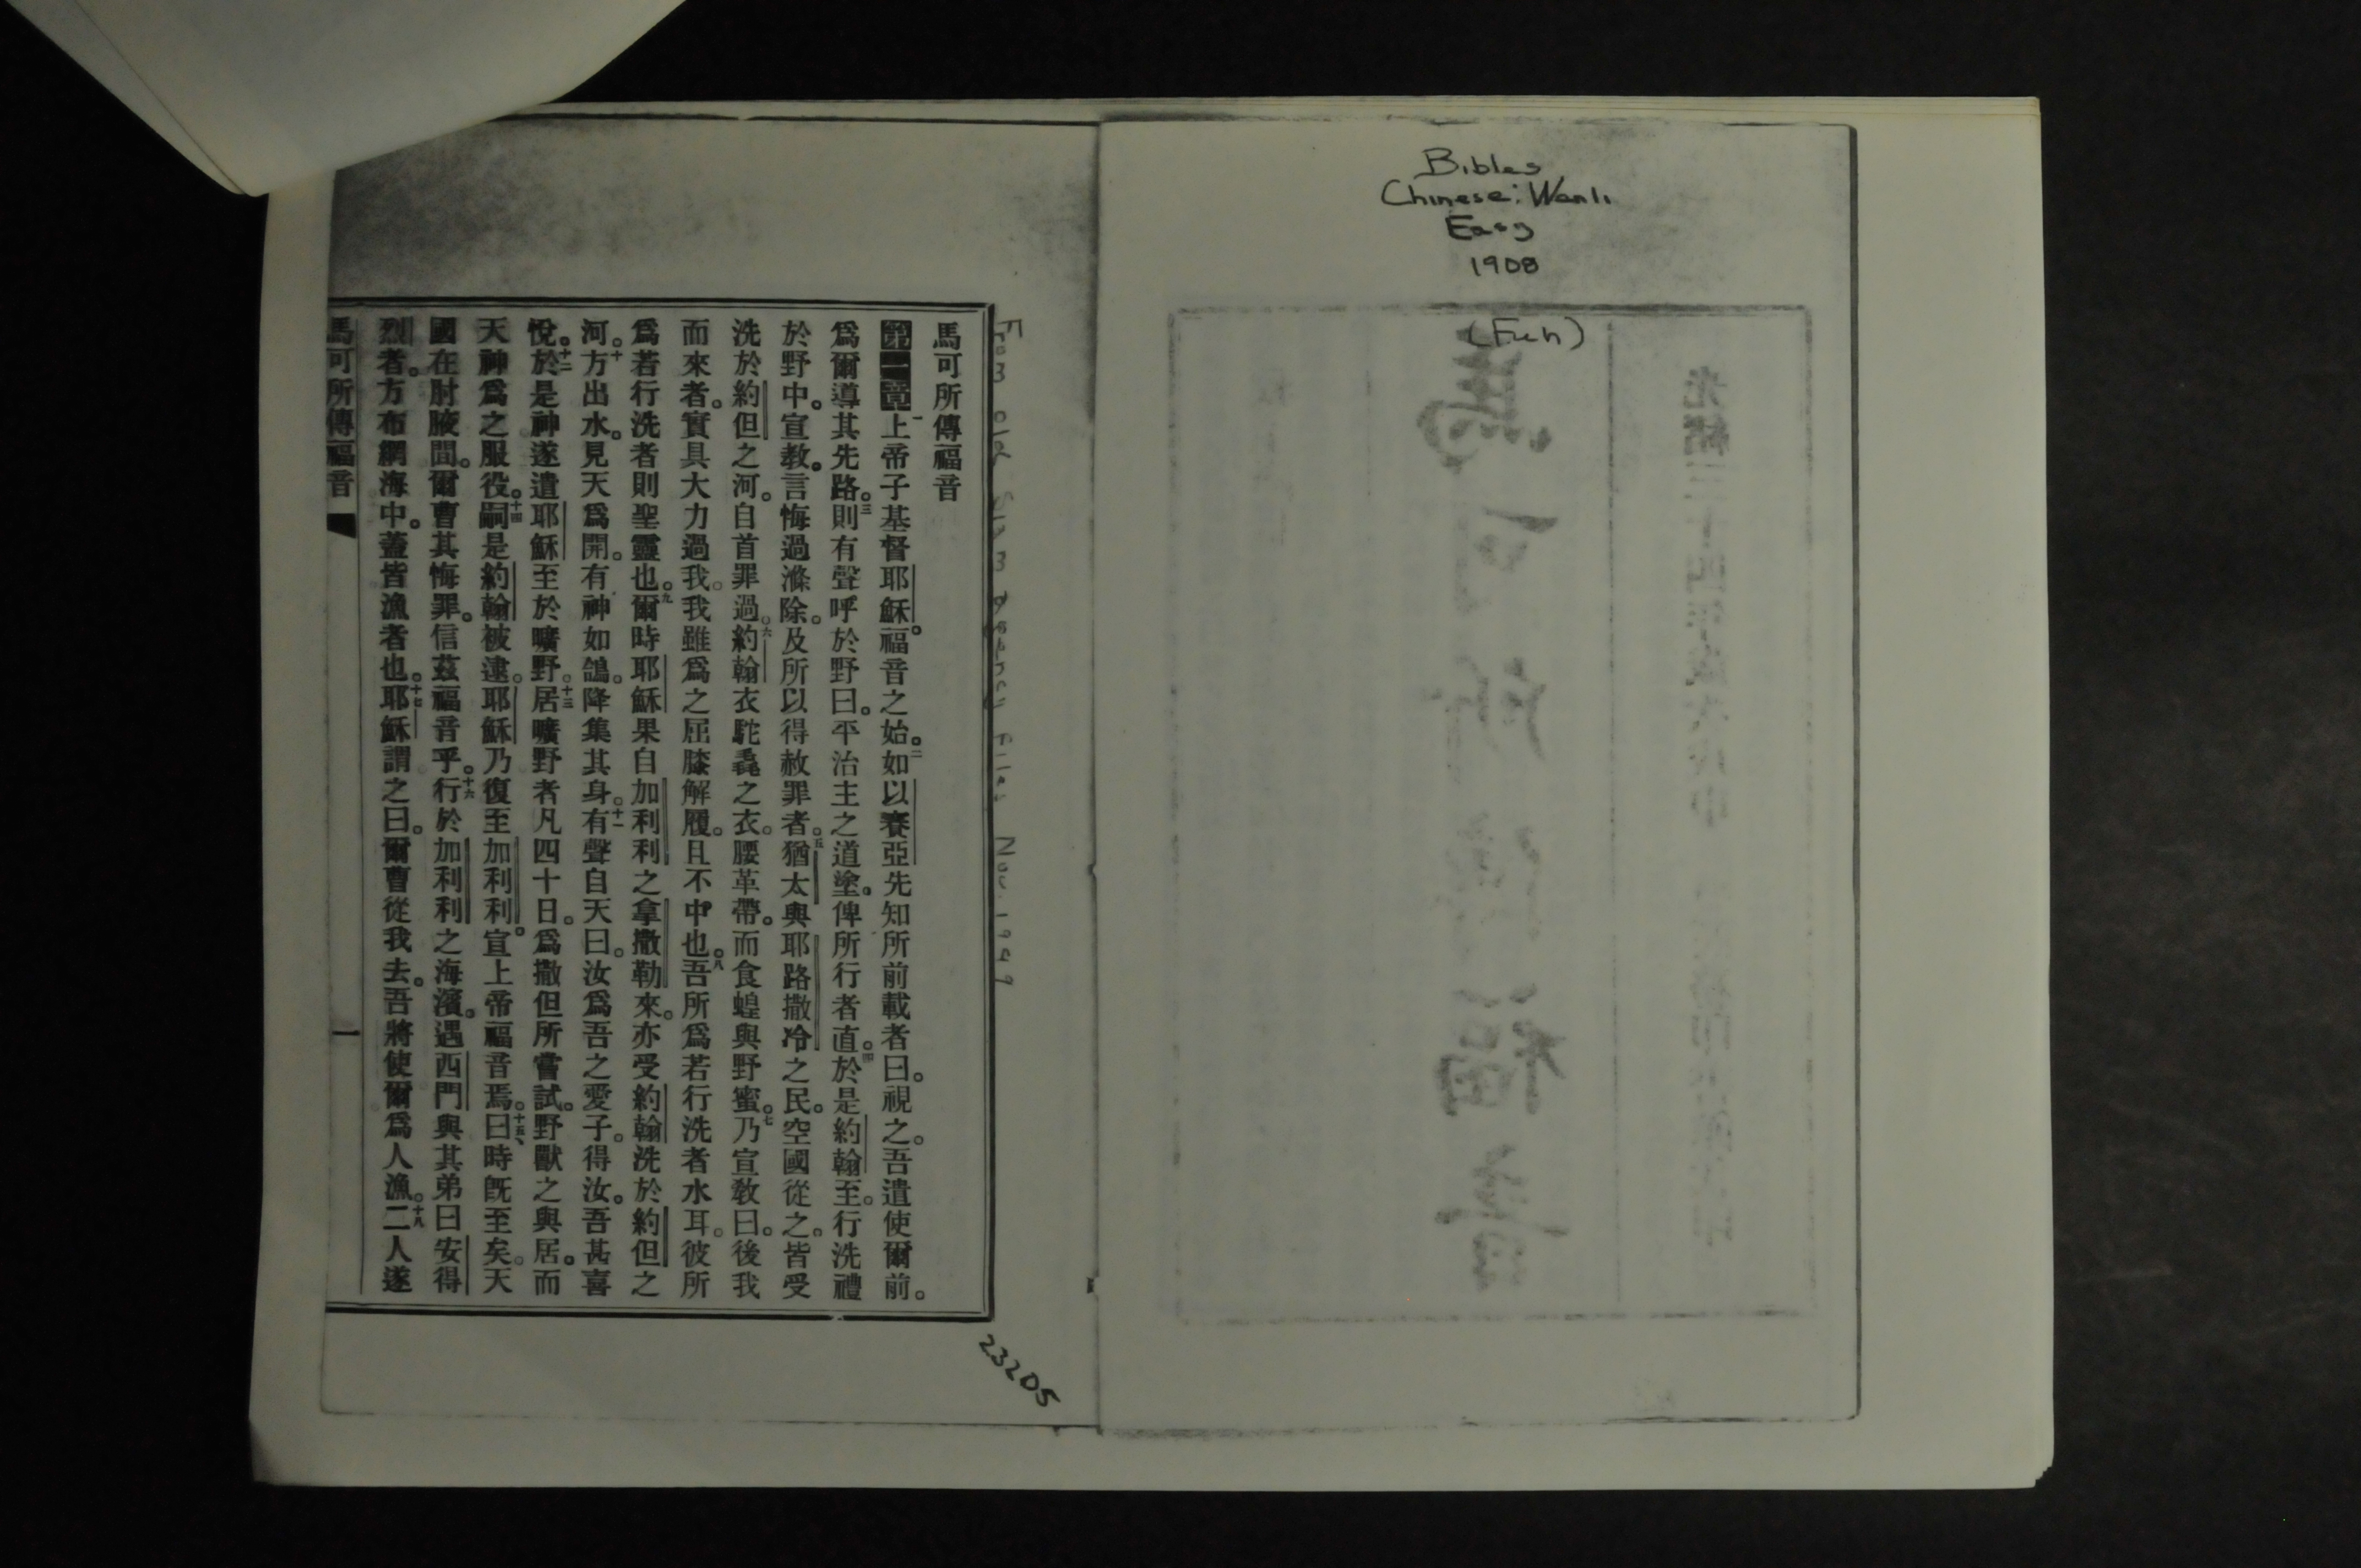 Bibles
Chinese: Wenli
Easy
1908
(Fuh)
馬可所傳福音
馬可所傳福音
第一章 一上帝子基督耶穌。福音之始。二如以賽亞先知所前載者曰。視之。吾遣使爾前。
爲爾導其先路。三則有聲呼於野曰。平治主之道塗。俾所行者直。四於是約翰至。行洗禮
於野中。宣教。言悔過滌除。及所以得赦罪者。五猶太與耶路撒冷之民。空國從之。皆受
洗於約但之河。自首罪過。六約翰衣駝毳之衣。腰革帶。而食蝗與野蜜。七乃宣教曰。後我
而來者。實具大力過我。我雖爲之屈膝解履。且不中也。八吾所爲若行洗者水耳。彼所
爲若行洗者則聖靈也。九爾時耶穌果自加利利之拿撒勒來。亦受約翰洗於約但之
河。十方出水。見天爲開。有神如鴿。降集其身。十一有聲自天曰。汝爲吾之愛子。得汝。吾甚喜
悅。十二於是神遂遣耶穌至於曠野。十三居曠野者凡四十日。爲撒但所嘗試。野獸之與居。而
天神爲之服役。十四嗣是約翰被逮。耶穌乃復至加利利。宣上帝福音焉。十五曰、時旣至矣。天
國在肘腋間。爾曹其悔罪。信茲福音乎。十六行於加利利之海濱。遇西門與其弟曰安得
烈者。方布網海中。蓋皆漁者也。十七耶穌謂之曰。爾曹從我去。吾將使爾爲人漁。十八二人遂
馬可所傳福音
一
23205